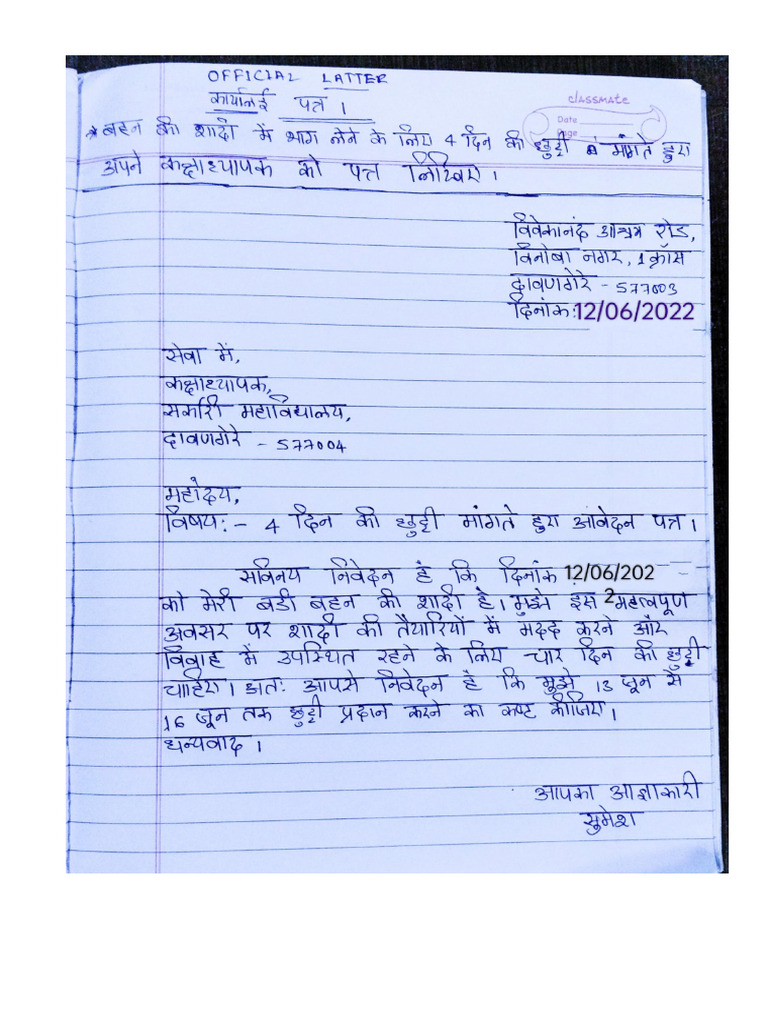 OFFICIAL LATTER
कार्यालई पत्र ।
classmate
Date
Page
* बहन की शादी में भाग लेने के लिए 4 दिन की छुट्टी मांगते हुए
अपने कक्षाध्यापक को पत्र लिखिए ।
विवेकानंद आश्रम रोड,
विनोबा नगर, 1 क्रॉस
दावणगेरे - 577003
दिनांक:12/06/2022
सेवा में,
कक्षाध्यापक,
सर्कारी महाविद्यालय,
दावणगेरे - 577004
महोदय,
विषय:- 4 दिन की छुट्टी मांगते हुए आवेदन पत्र ।
सविनय निवेदन है कि दिनांक 12/06/202
को मेरी बडी बहन की शादी है। मुझे इस 2 महत्वपूण
अवसर पर शादी की तैयारियों में मदद करने और
विवाह में उपस्थित रहने के लिए चार दिन की छुट्टी
चाहिए । अतः आपसे निवेदन है कि मुझे 13 जून से
16 जून तक छुट्टी प्रदान करने का कष्ट कीजिए।
धन्यवाद ।
आपका आज्ञाकारी
सुमेश